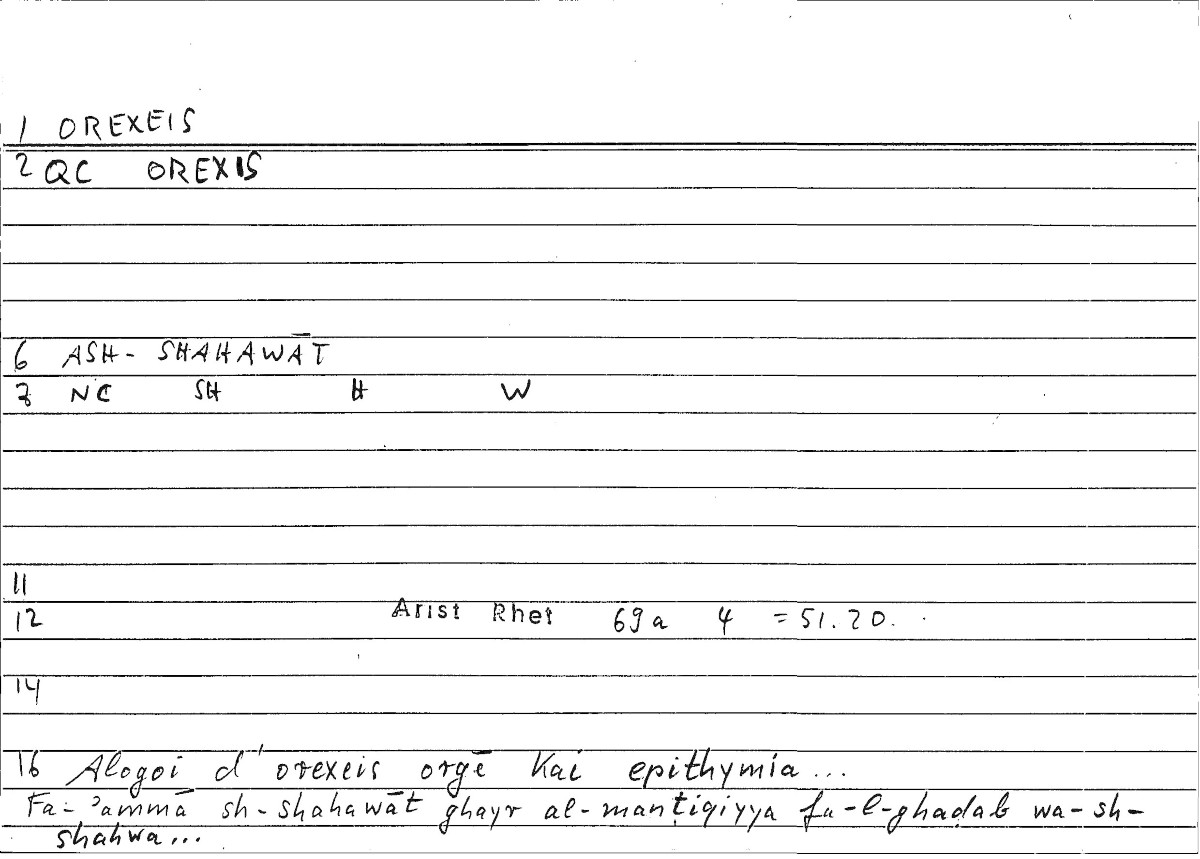 1 OREXEIS
2 QC OREXIS
6 ASH- SHAHAWĀT
7 NC SH H W
11
12 Arist Rhet 69a 4 = 51.20.
14
16 Alogoi d' orexeis orgē kai epithymia...
Fa-ʾammā sh-shahawāt ghayr al-manṭiqiyya fa-l-ghaḍab wa-sh-
shahwa...